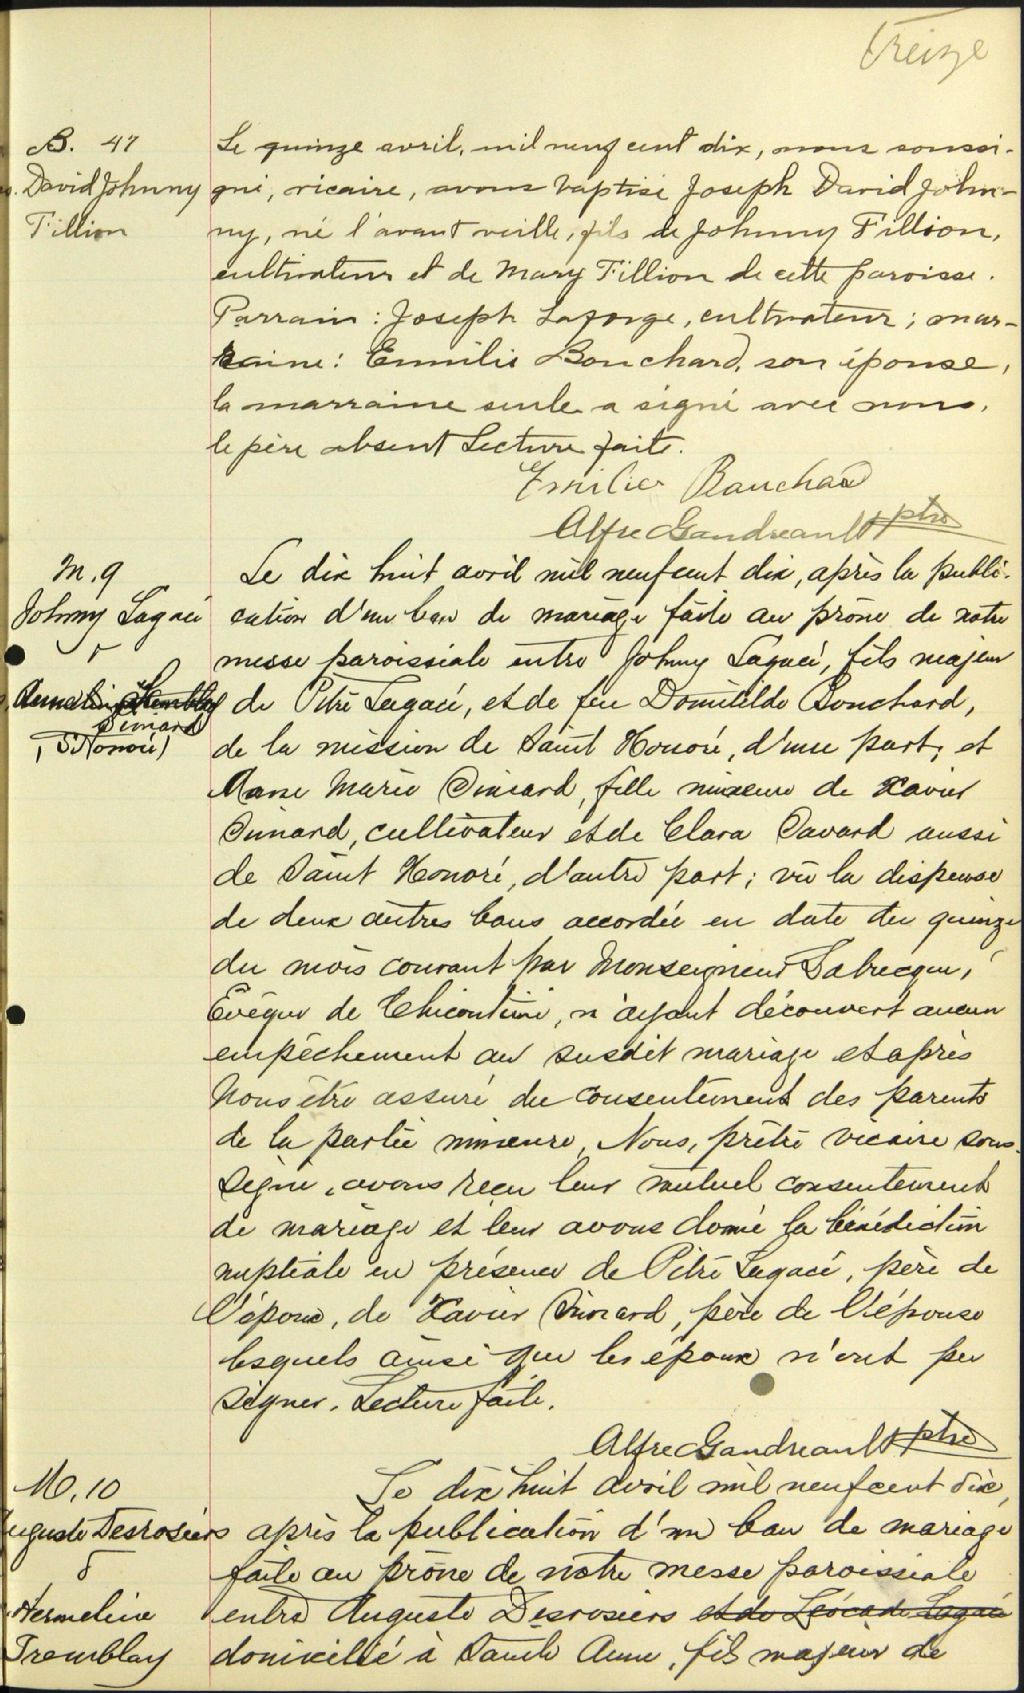 Treize
B. 47
David Johnny
Fillion
Le quinze avril, mil neuf cent dix, nous soussi-
gné, vicaire, avons baptisé Joseph David John-
ny, né l'avant veille, fils de Johnny Fillion,
cultivateur et de Mary Fillion de cette paroisse.
Parrain : Joseph Laforge, cultivateur ; mar-
raine : Emilie Bouchard, son épouse,
la marraine seule a signé avec nous,
le père absent Lecture faite.
Emilie Bouchard
Alfred Gaudreault ptre
M. 9
Johny Lagacé
&
Simard
(St Honoré)
Le dix huit avril mil neuf cent dix, après la publi-
cation d'un ban de mariage faite au prône de notre
messe paroissiale entre Johny Lagacé, fils majeur
de Pitre Lagacé, et de feu Domitilde Bouchard,
de la mission de Saint Honoré, d'une part, et
Anne Marie Simard, fille mineure de Xavier
Simard, cultivateur et de Clara Savard aussi
de Saint Honoré, d'autre part ; vu la dispense
de deux autres bans accordée en date du quinze
du mois courant par Monseigneur Labrecque,
Évêque de Chicoutimi, n'ayant découvert aucun
empêchement au susdit mariage et après
Nous être assuré du consentement des parents
de la partie mineure, Nous, prêtre vicaire sous-
signé, avons reçu leur mutuel consentement
de mariage et leur avons donné la bénédiction
nuptiale en présence de Pitre Lagacé, père de
l'époux, de Xavier Simard, père de l'épouse
lesquels ainsi que les époux n'ont pu
signer. Lecture faite.
Alfred Gaudreault ptre
M. 10
Auguste Desrosiers
&
Hermeline
Tremblay
Le dix huit avril mil neuf cent dix,
après la publication d'un ban de mariage
faite au prône de notre messe paroissiale
entre Auguste Desrosiers et de Léocade Lagacé
domicilié à Sainte Anne, fils majeur de